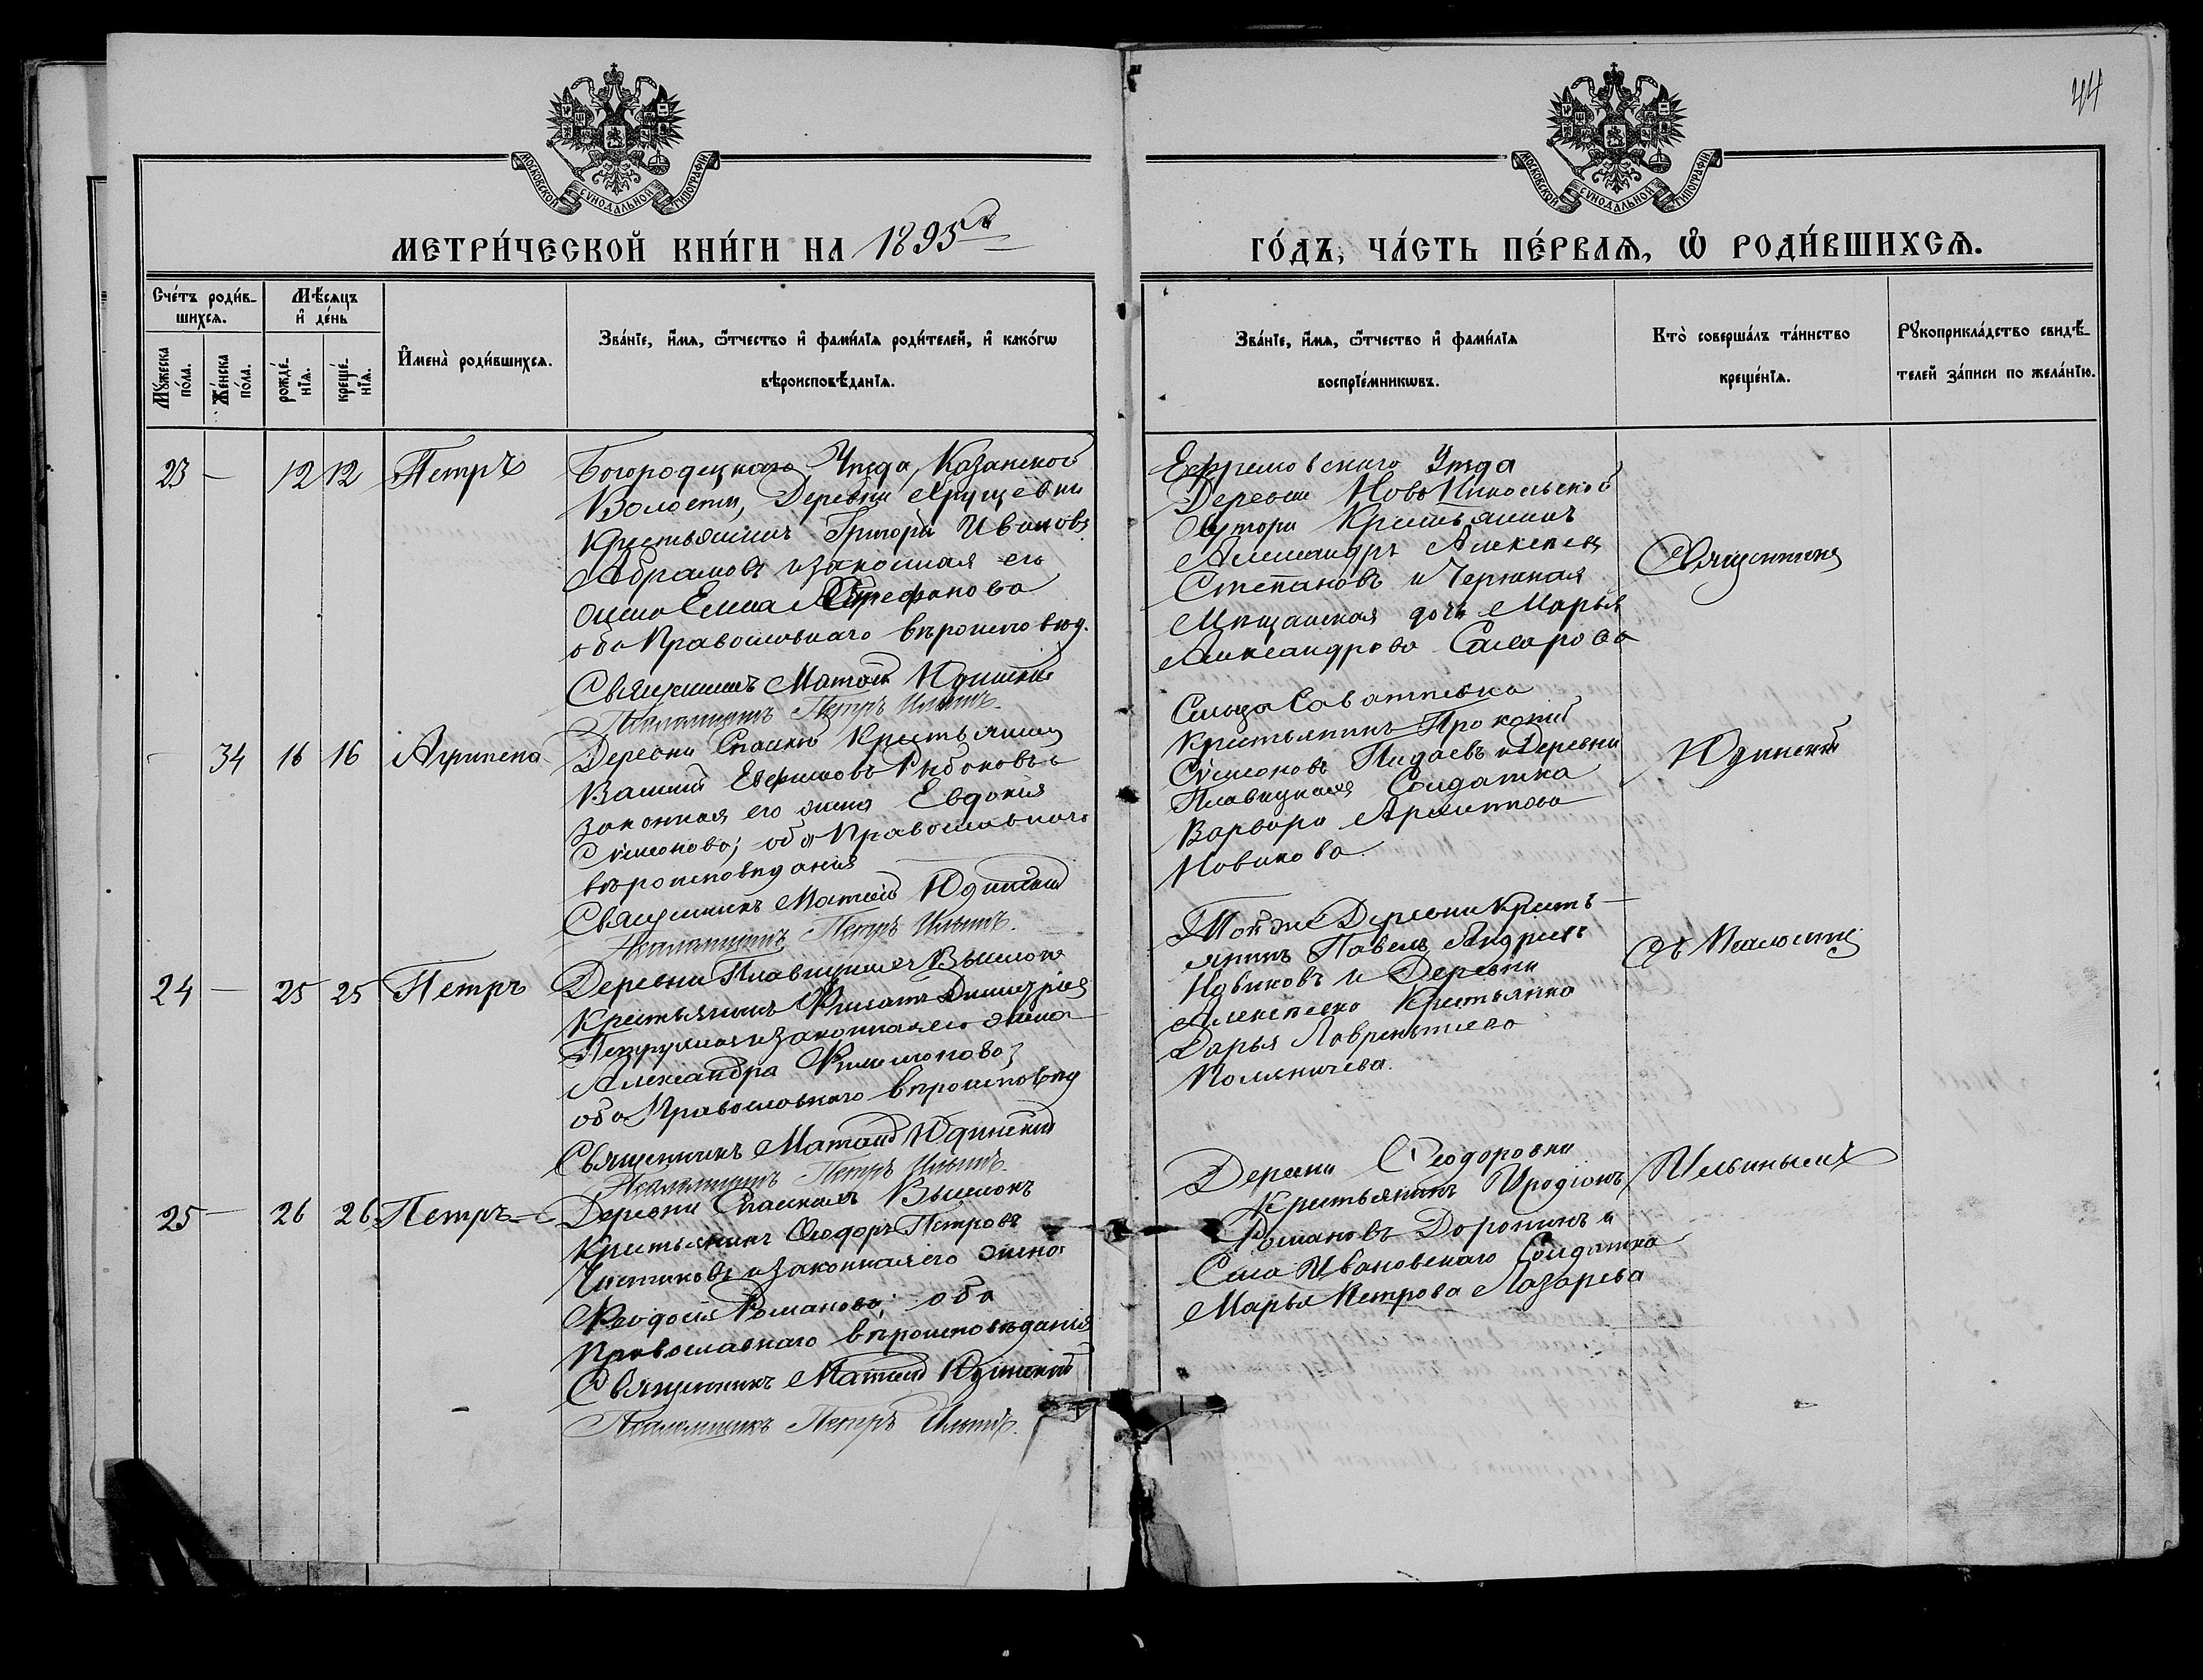 44
МОСКОВСКОЙ СѴНОДАЛЬНОЙ ТИПОГРАФІИ.
МОСКОВСКОЙ СѴНОДАЛЬНОЙ ТИПОГРАФІИ.
МЕТРИ́ЧЕСКОЙ КНИ́ГИ НА 1895й
ГО́ДЪ, ЧА́СТЬ ПЕ́РВАѦ, Ѡ҆ РОДИ́ВШИХСѦ.
Сче́тъ роди́в-
шихсѧ.
Мѣ́сѧцъ
и҆ де́нь
Мꙋ́жеска по́ла.
Же́нска по́ла.
рожде́-
нїѧ.
креще́-
нїѧ.
И҆мена̀ роди́вшихсѧ.
Зва́нїе, и҆́мѧ, ѻ҆́тчество и҆ фами́лїѧ роди́телей, и҆ како́гѡ
вѣроисповѣ́данїѧ.
Зва́нїе, и҆́мѧ, ѻ҆́тчество и҆ фами́лїѧ
воспрїе́мникѡвъ.
Кто̀ соверша́лъ та́инство
креще́нїѧ.
Рꙋкоприкла́дство свидѣ́-
телей за́писи по жела́нїю.
23 — 12 12 Петръ
Богородецкаго Уѣзда, Казанской
Волости, Деревни Хрущевки
Крестьянинъ Григорій Ивановъ
Абрамовъ и законная его
жена Елена Стефанова
оба Православнаго вѣроисповѣд.
Священникъ Матѳей Юдинскій
Псаломщикъ Петръ Ильинъ.
Ефремовскаго Уѣзда
Деревни Ново Никольской
Хутора Крестьянинъ
Александръ Алексѣевъ
Степановъ и
Мѣщанская дочь Марья
Александрова
Священникъ
— 34 16 16 Агрипена
Деревни Спаской Крестьянинъ
Василій Ефимовъ Рыбоковъ и
законная его жена Евдокія
Сѵмеонова; оба Православнаго
вѣроисповѣданія
Священникъ Матѳей Юдинскій
Псаломщикъ Петръ Ильинъ.
Сельца Саватѣевка
Крестьянинъ Прокопій
Сѵмеоновъ и Деревни
Плавицкая Солдатка
Варвара
Новикова.
Юдинскій
24 — 25 25 Петръ
Деревни Плавицкихъ Выселокъ
Крестьянинъ Филатъ Димитріев
и законная его жена
Александра Филимонова;
оба Православнаго вѣроисповѣд
Священникъ Матѳей Юдинскій
Псаломщикъ Петръ Ильинъ.
Той же Деревни Кресть-
янинъ Павелъ Андреевъ
Новиковъ и Деревни
Алексѣевка Крестьянка
Дарья Лаврентьева
Поляничева.
Съ Псаломщ
25 — 26 26 Петръ
Деревни Спаскихъ Выселокъ
Крестьянинъ Ѳеодоръ Петровъ
Чистиковъ и законная его жена
Ѳеодосія Романова; оба
Православнаго вѣроисповѣданія
Священникъ Матѳей Юдинскій
Псаломщикъ Петръ Ильинъ.
Деревни Ѳеодоровки
Крестьянинъ Иродіонъ
Романовъ Доронинъ и
Села Ивановскаго Солдатка
Марья Петрова Лазарева
Ильинымъ